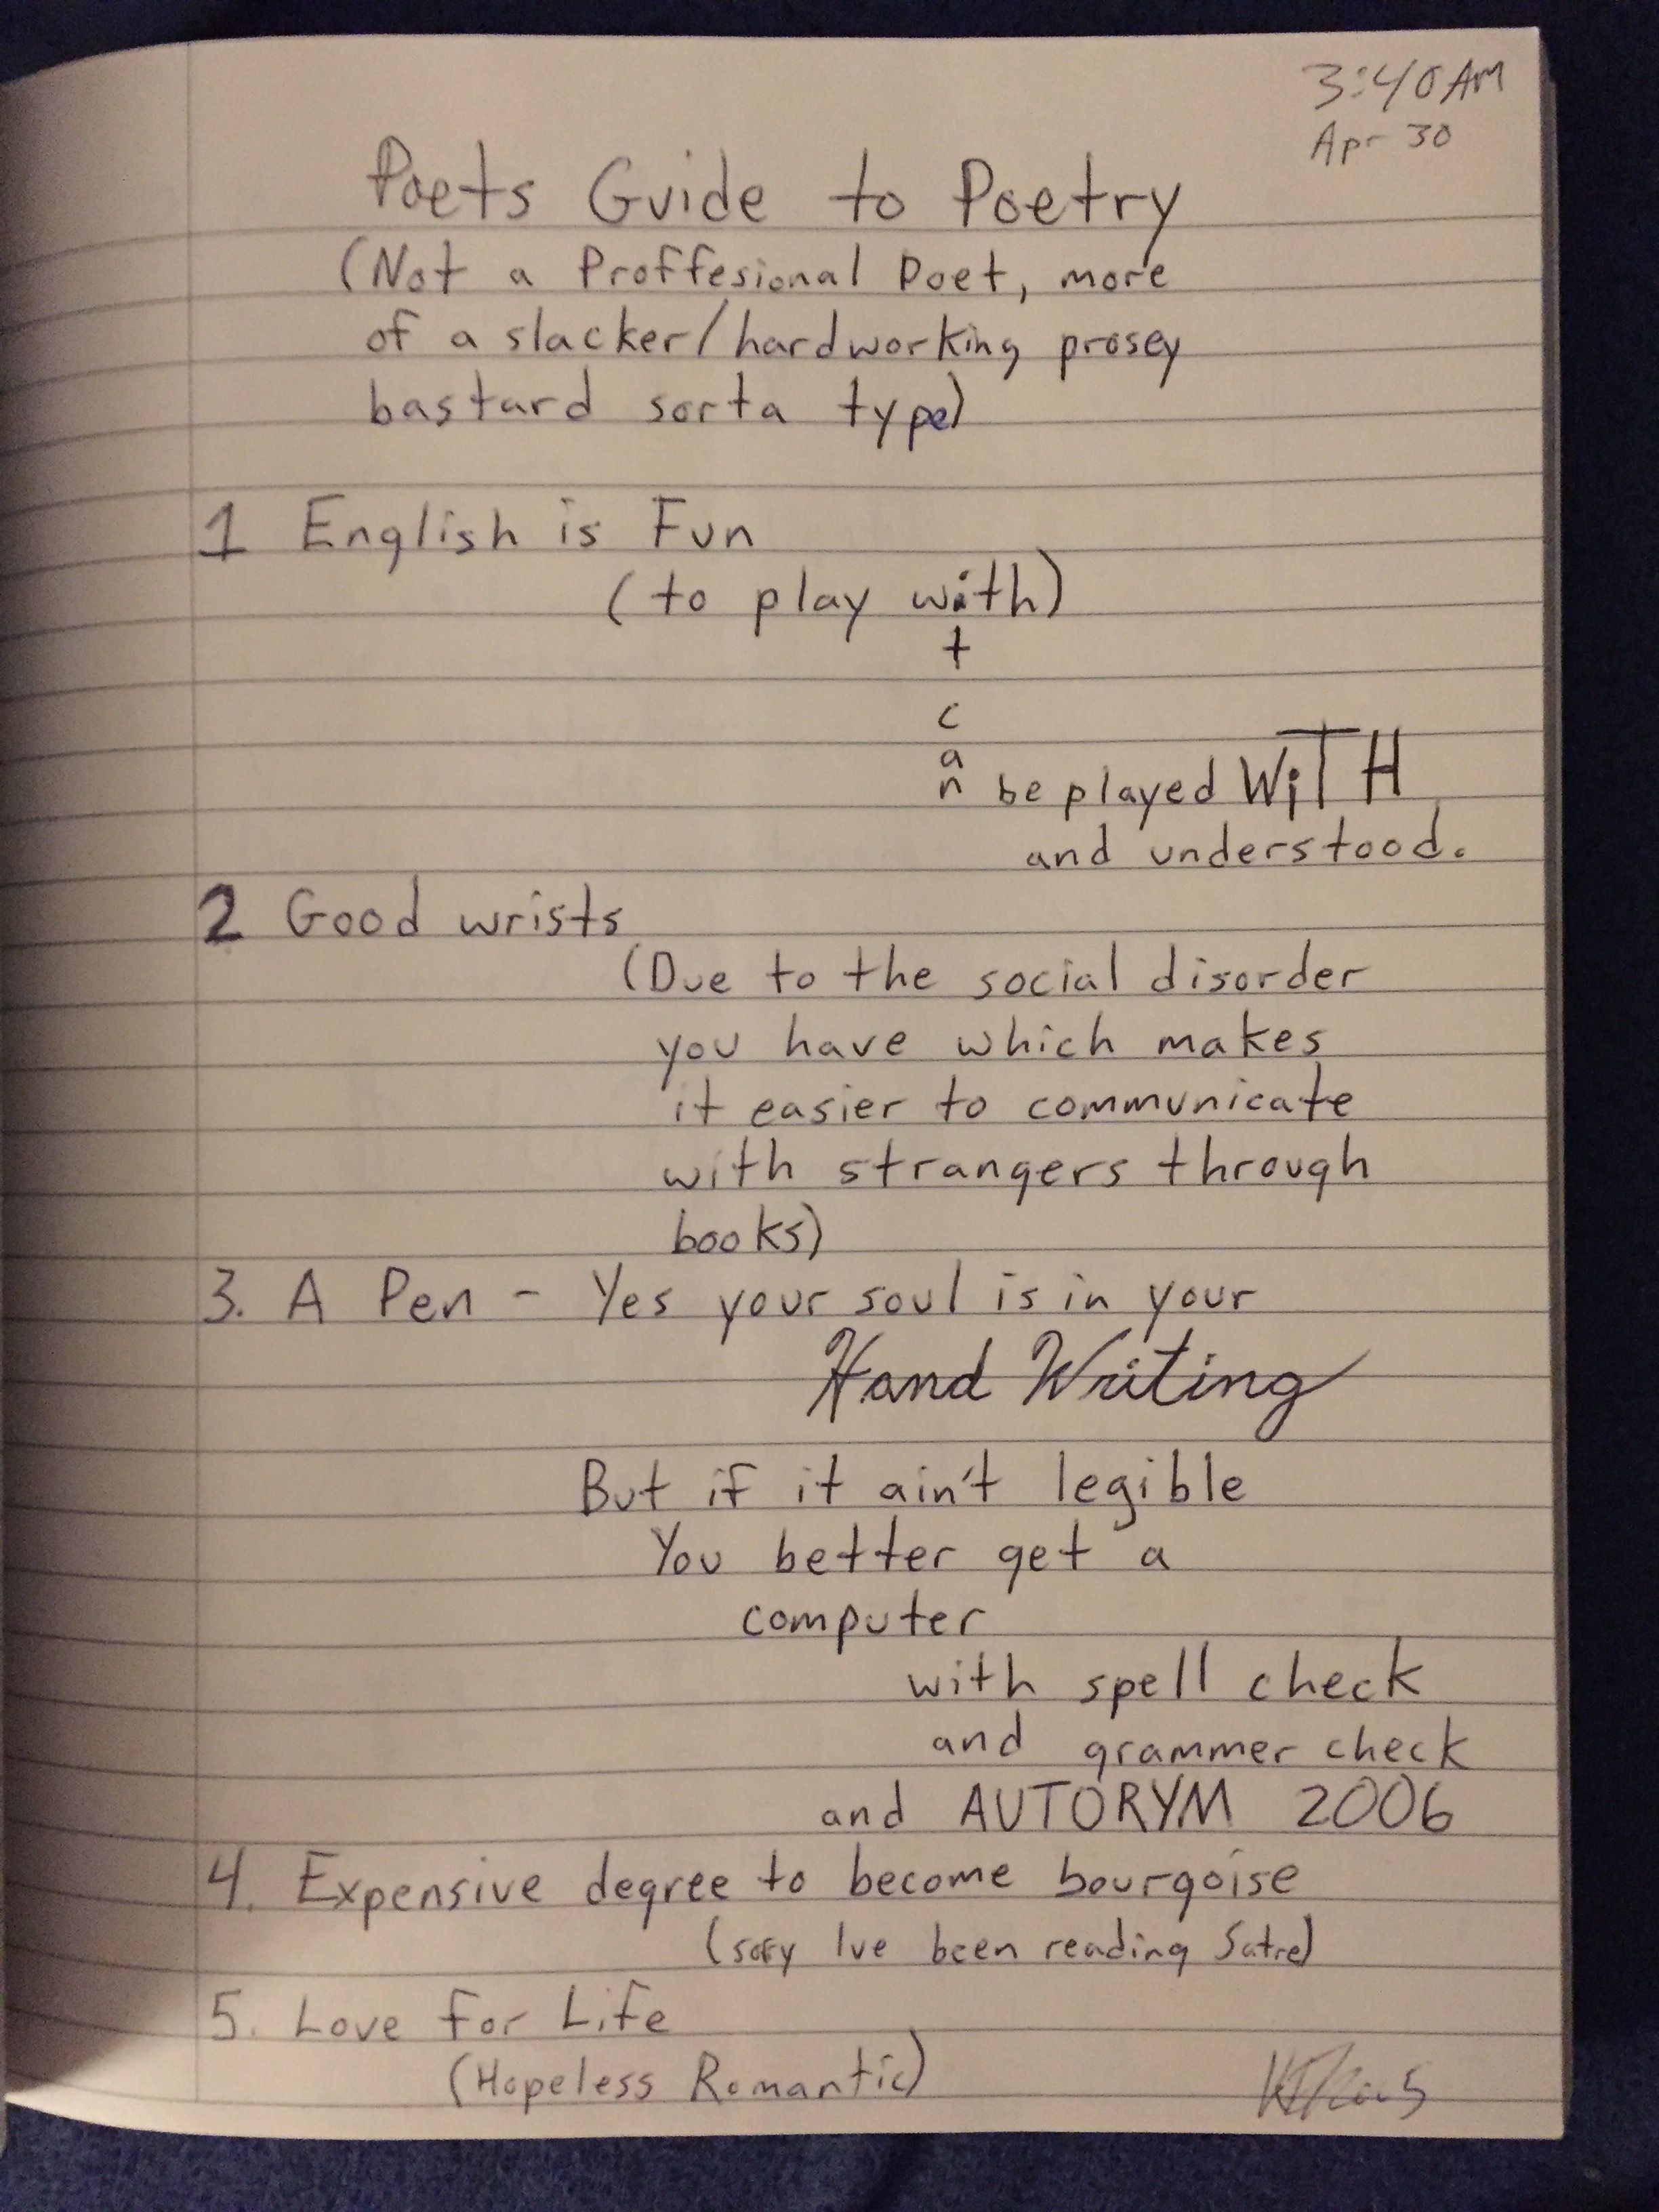 3:40 AM
Apr 30
Poets Guide to Poetry
(Not a Proffesional Poet, more
of a slacker/hardworking prosey
bastard sorta type)
1 English is Fun
(to play with)
t
c
a
n be played WiTH
and understood.
2 Good wrists
(Due to the social disorder
you have which makes
it easier to communicate
with strangers through
books)
3. A Pen - Yes your soul is in your
Hand Writing
But if it ain't legible
You better get a
computer
with spell check
and grammer check
and AUTORYM 2006
4. Expensive degree to become bourgoise
(sory Ive been reading Satre)
5. Love for Life
(Hopeless Romantic)